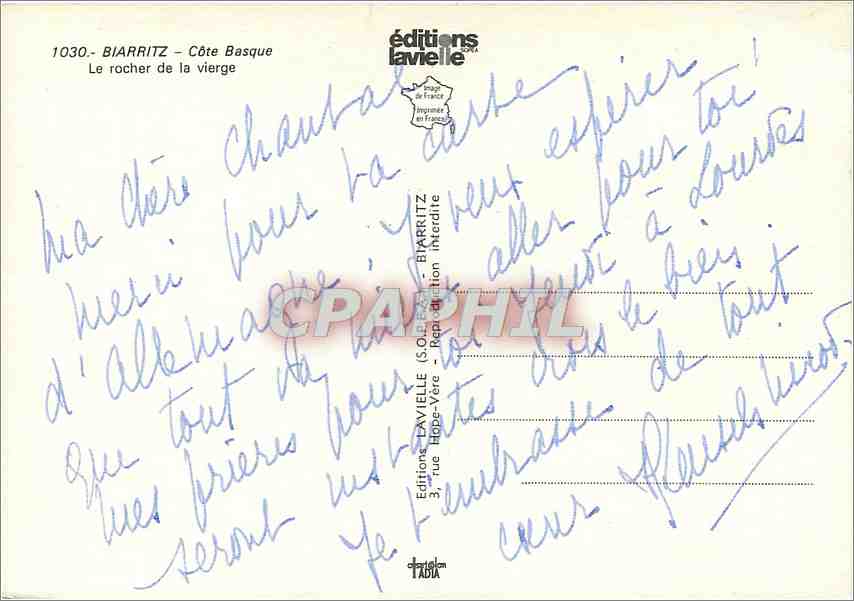 1030.- BIARRITZ - Côte Basque
Le rocher de la vierge
éditions
lavielle
SOPEA
Image
de France
Imprimée
en France
Ma chère Chantal
merci pour ta carte
d'Allemagne, Je veux espérer
que tout va bien aller pour toi!
mes prières pour toi jeudi à Lourdes
seront instantes crois le bien;
Je t'embrasse de tout
cœur
Editions LAVIELLE (S.O.P.E.A.) - BIARRITZ
3, rue Hope-Vère - Reproduction interdite
CPAPHIL